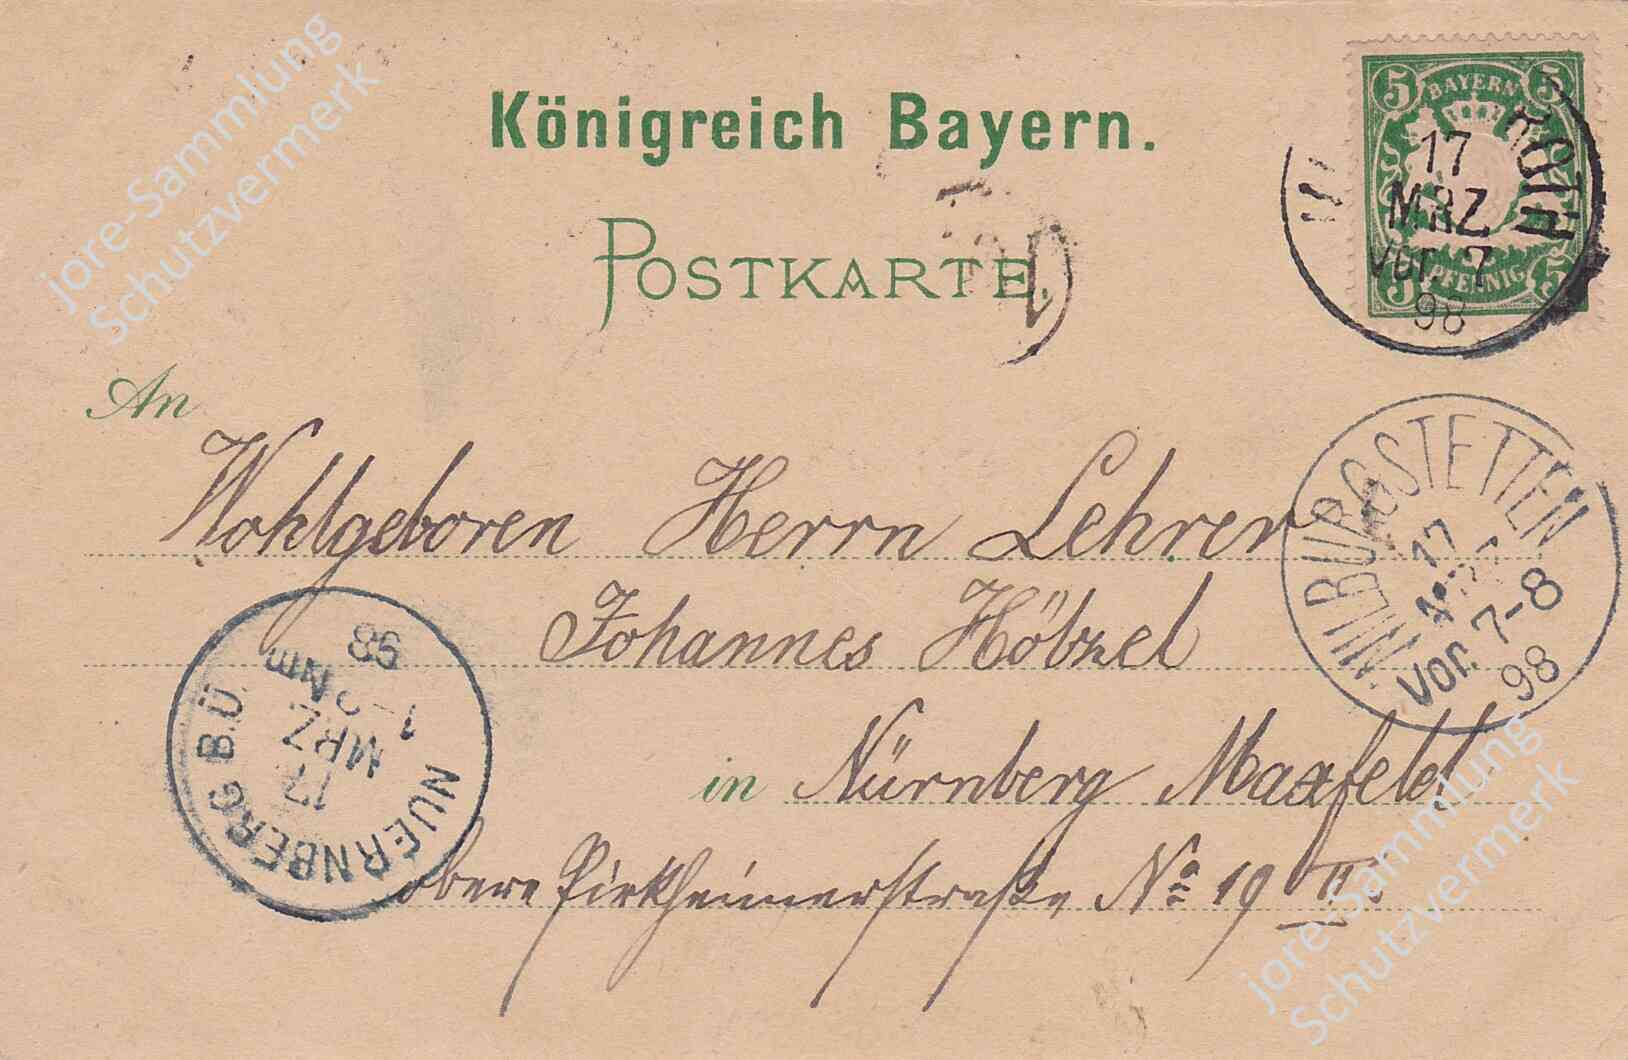 jore-Sammlung
Schutzvermerk
Königreich Bayern.
5 BAYERN 5
5 PFENNIG 5
ROTH
17
MRZ
Vor. 7
98
POSTKARTE.
An
Wohlgeboren Herrn Lehrer
Johannes Hölzel
in Nürnberg Maxfeld
obere Pirkheimerstraße No 19 II
WURGSTETTEN
17
Vor. 7-8
98
NUERNBERG B.Ü.
17
MRZ
98
jore-Sammlung
Schutzvermerk